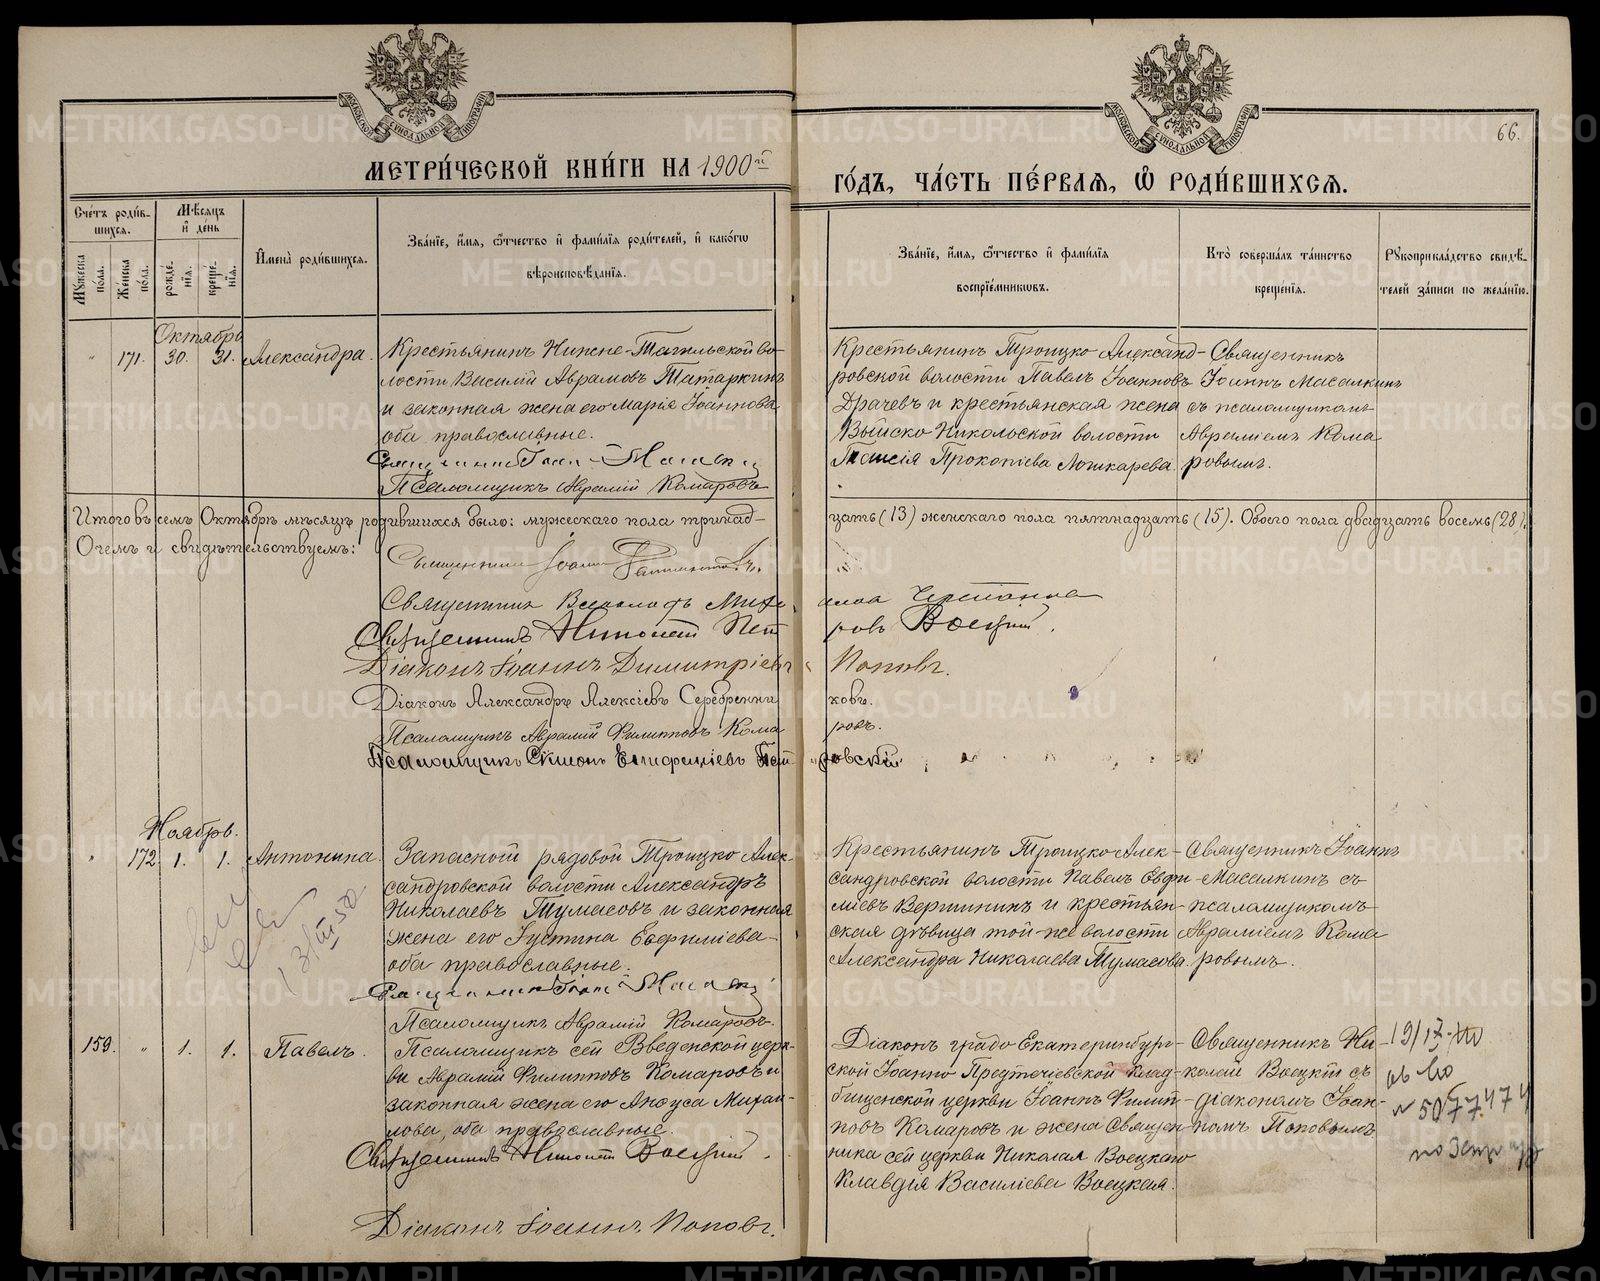 66.
МЕТРИ́ЧЕСКОЙ КНИ́ГИ НА 1900й
ГО́ДЪ, ЧА́СТЬ ПЕ́РВАЯ, Ѿ РОДИ́ВШИХСЯ.
Сче́тъ роди́в-
шихся.
Мужеска по́ла.
Женска по́ла.
Мѣсяцъ
и де́нь
рожде-
нія.
креще-
нія.
Имена̀ роди́вшихся.
Зва́ніе, и́мя, ѻ́тчество и фами́лія роди́телей, и како́гѡ
вѣроисповѣ́данія.
Зва́ніе, и́мя, ѻ́тчество и фами́лія
воспріе́мниковъ.
Кто̀ соверша́лъ та́инство
креще́нія.
Рукоприкла́дство свидѣ́-
телей за́писи по жела́нію.
Октябрь
" 171. 30. 31. Александра.
Крестьянинъ Нижне-Тагильской во-
лости Василій Аврамовъ Татаркинъ
и законная жена его Марія Іоаннова
оба православные.
Псаломщикъ Аврамій Комаровъ
Крестьянинъ Троицко Александ-
ровской волости Павелъ Іоанновъ
Драчевъ и крестьянская жена
Выйско-Никольской волости
Таисія Прокопіева Лошкарева.
Священникъ
Іоаннъ Масалкинъ
съ псаломщикомъ
Авраміемъ Кома
ровымъ.
Итого въ семъ Октябрѣ мѣсяцѣ родившихся было: мужескаго пола тринад-
цать (13) женскаго пола пятнадцать (15). Обоего пола двадцать восемь (28).
О чемъ и свидѣтельствуемъ:
Священникъ Іоаннъ
Священникъ
Священникъ Николай Петровъ Воецкій.
Діаконъ Іоаннъ Димитріевъ Поповъ.
Діаконъ Александръ Алексіевъ Серебренниковъ.
Псаломщикъ Аврамій Филипповъ Комаровъ.
Псаломщикъ Симонъ Епифаніевъ
Ноябрь.
" 172 1. 1. Антонина.
Запасной рядовой Троицко Алек-
сандровской волости Александръ
Николаевъ Тумасовъ и законная
жена его Іустина Евфиміева
оба православные.
Псаломщикъ Аврамій Комаровъ.
Крестьянинъ Троицко Алек-
сандровской волости Павелъ Евфи-
міевъ Вершининъ и крестьян-
ская дѣвица той же волости
Александра Николаева Тумасова.
Священникъ Іоаннъ
Масалкинъ съ
псаломщикомъ
Авраміемъ Кома
ровымъ.
159. " 1. 1. Павелъ.
Псаломщикъ сей Введенской церк-
ви Аврамій Филипповъ Комаровъ и
законная жена его Анфуса Михаи-
лова, оба православные.
Священникъ Николай Воецкій.
Діаконъ Іоаннъ Поповъ.
Діаконъ градо Екатеринбург-
ской Іоанно Предтечіевской клад-
бищенской церкви Іоаннъ Филип-
повъ Комаровъ и жена священ-
ника сей церкви Николая Воецкаго
Клавдія Василіева Воецкая.
Священникъ Ни-
колай Воецкій съ
діакономъ Іоан-
номъ Поповымъ